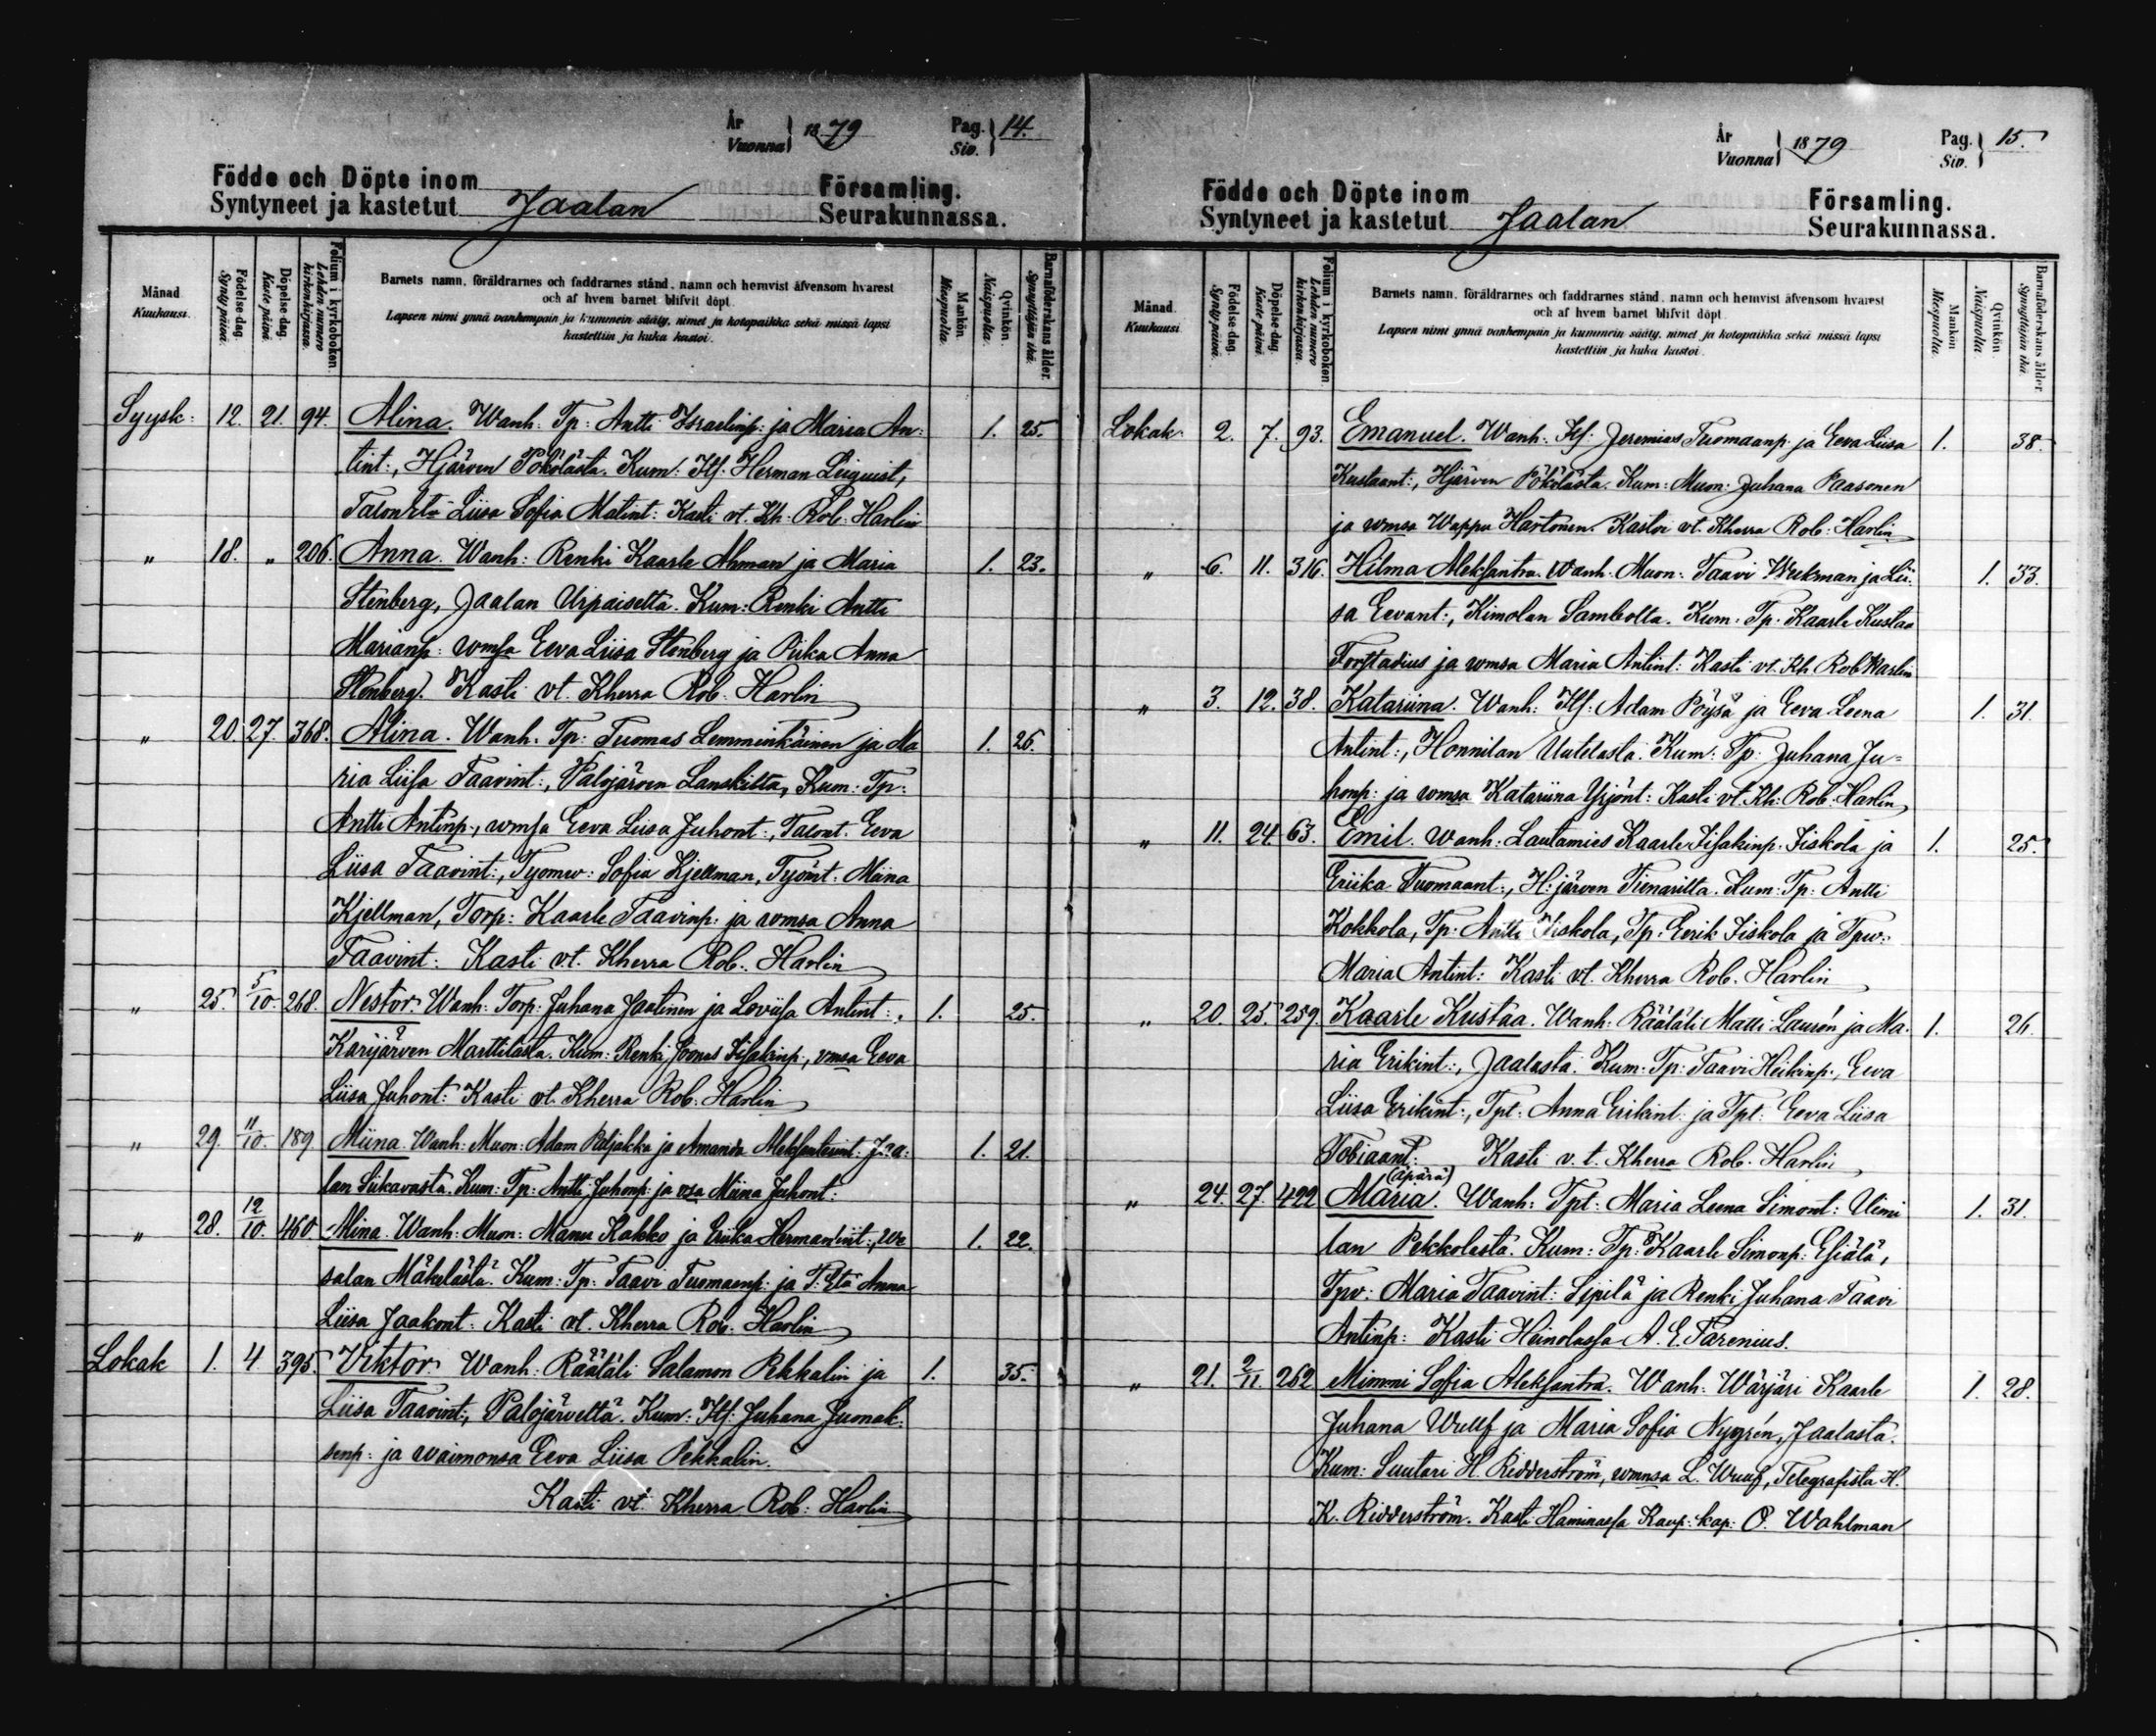 År
Vuonna } 1879 Pag. Siv. } 14.
Födde och Döpte inom Församling.
Syntyneet ja kastetut Jaalan Seurakunnassa.
Månad Kuukausi. Födelse-dag. Synty päivä. Döpelse-dag. Kaste päivä. Folium i kyrkoboken. Lehden numero kirkonkirjassa. Barnets namn, föräldrarnes och faddrarnes stånd, namn och hemvist äfvensom hvarest och af hvem barnet blifvit döpt. Lapsen nimi ynnä vanhempain ja kummein sääty, nimet ja kotopaikka sekä missä lapsi kastettiin ja kuka kastoi. Mankön. Miespuolta. Qvinkön. Naispuolta. Barnaföderskans ålder. Synnyttäjän ikä.
Syysk: 12. 21. 94. Alina. Wanh: Tp: Antti Israelinp: ja Maria An- 1. 25.
tint:, Hjärven Pökölästä. Kum: Itf: Herman Leiquist,
Talon Liisa Sofia Matint: Kasti vt. Kh: Rob. Harlin
" 18. " 206. Anna. Wanh: Renki Kaarle Ahman ja Maria 1. 23.
Stenberg, Jaalan Urpaiselta. Kum: Renki Antti
Marianp: wmsa Eeva Liisa Stenberg ja Piika Anna
Stenberg. Kasti vt. Kherra Rob. Harlin
" 20. 27. 368. Alina. Wanh. Tp: Tuomas Lemminkäinen ja Ma 1. 26.
ria Liisa Taavint:, Palojärven Lanskilta, Kum: Tp:
Antti Antinp:, wmsa Eeva Liisa Juhont:, Talont. Eeva
Liisa Taavint:, Tyomw: Sofia Kjellman, Tyónt. Miina
Kjellman, Torp: Kaarle Taavinp: ja wmsa Anna
Taavint: Kasti v.t. Kherra Rob. Harlin
" 25. 5/10. 268. Nestor. Wanh: Torp: Juhana Jaatinen ja Loviisa Antint:, 1. 25.
Karijärven Marttilasta. Kum: Renki Joonas Iisakinp:, vmsa Eeva
Liisa Juhont: Kasti vt. Kherra Rob. Harlin
" 29. 11/10. 189 Miina. Wanh: Muon: Adam Paljakka ja Amanda Aleksanterint: Jaa- 1. 21.
lan Siikavasta. Kum: Tp: Antti Juhonp: ja vsa Miina Juhont:
" 28. 12/10. 460 Miina. Wanh: Muon: Manu Kakko ja Eriika Hermannint:, We 1. 22.
salan Mäkelästä. Kum: Tp: Taavi Tuomaanp: ja T: Anna
Liisa Jaakont: Kasti vt. Kherra Rob. Harlin
Lokak 1. 4. 395. Viktor. Wanh: Räätäli Salamon Pekkalin ja 1. 35.
Liisa Taavint:, Palojärveltä. Kum: Itf: Juhana Juonak-
senp: ja waimonsa Eeva Liisa Pekkalin.
Kasti vt. Kherra Rob. Harlin
År
Vuonna } 1879 Pag. Siv. } 15.
Födde och Döpte inom Församling.
Syntyneet ja kastetut Jaalan Seurakunnassa.
Månad Kuukausi Födelse-dag. Synty päivä. Döpelse-dag. Kaste päivä. Folium i kyrkoboken. Lehden numero kirkonkirjassa. Barnets namn, föräldrarnes och faddrarnes stånd, namn och hemvist äfvensom hvarest och af hvem barnet blifvit döpt. Lapsen nimi ynnä vanhempain ja kummein sääty, nimet ja kotopaikka sekä missä lapsi kastettiin ja kuka kastoi. Mankön Miespuolta. Qvinkön. Naispuolta. Barnaföderskans ålder Synnyttäjän ikä.
Lokak 2. 7. 93. Emanuel. Wanh: Itf: Jeremias Tuomaanp: ja Eeva Liisa 1. 38.
Kustaant:, Hjärven Pökölästä. Kum: Muon: Juhana Paasonen
ja wmsa Wappu Hartonen. Kastoi vt. Kherra Rob. Harlin
" 6. 11. 316. Hilma Aleksantra. Wanh. Muon: Taavi Wrekman ja Lii- 1. 33.
sa Eevant:, Kimolan Sambolta. Kum: Tp. Kaarle Kustaa
Forstadius ja wmsa Maria Antint: Kasti vt. Kh. Rob Harlin
" 3. 12. 38. Katariina. Wanh: Itf: Adam Pöysä ja Eeva Leena 1. 31.
Antint:, Honnilan Uutelasta. Kum: Tp: Juhana Ju=
honp: ja wmsa Katariina Yrjönt: Kasti vt. Kh: Rob. Harlin
" 11. 24. 63. Emil. Wanh: Lautamies Kaarle Iisakinp: Iiskola ja 1. 25.
Eriika Tuomaant:, H:järven Tienarilta. Kum: Tp: Antti
Kokkola, Tp: Antti Iiskola, Tp: Eerik Iiskola ja Tpw:
Maria Antint: Kasti vt. Kherra Rob. Harlin
" 20. 25. 259. Kaarle Kustaa. Wanh: Räätäli Matti Laurén ja Ma- 1. 26.
ria Erikint:, Jaalasta. Kum: Tp: Taavi Heikinp:, Eeva
Liisa Erikint:, Tpt: Anna Erikint: ja Tpt: Eeva Liisa
Tobiaant: Kasti v.t. Kherra Rob. Harlin
(äpärä)
" 24. 27. 422 Maria. Wanh: Tpt: Maria Leena Simont: Uimi 1. 31.
lan Pekkolasta. Kum: Tp: Kaarle Simonp: Eliälä,
Tpw: Maria Taavint: Sipilä ja Renki Juhana Taavi
Antinp: Kasti Heinolassa A. E. Farenius.
" 21. 2/11. 262 Mimmi Sofia Aleksantra. Wanh: Wärjäri Kaarle 1. 28.
Juhana Wulff ja Maria Sofia Nygrén, Jaalasta.
Kum: Suutari H. Ridderström, wmnsa L. Wulf, Telegrafista H.
K. Ridderström. Kasti Haminassa Kaup: kap: O. Wahlman